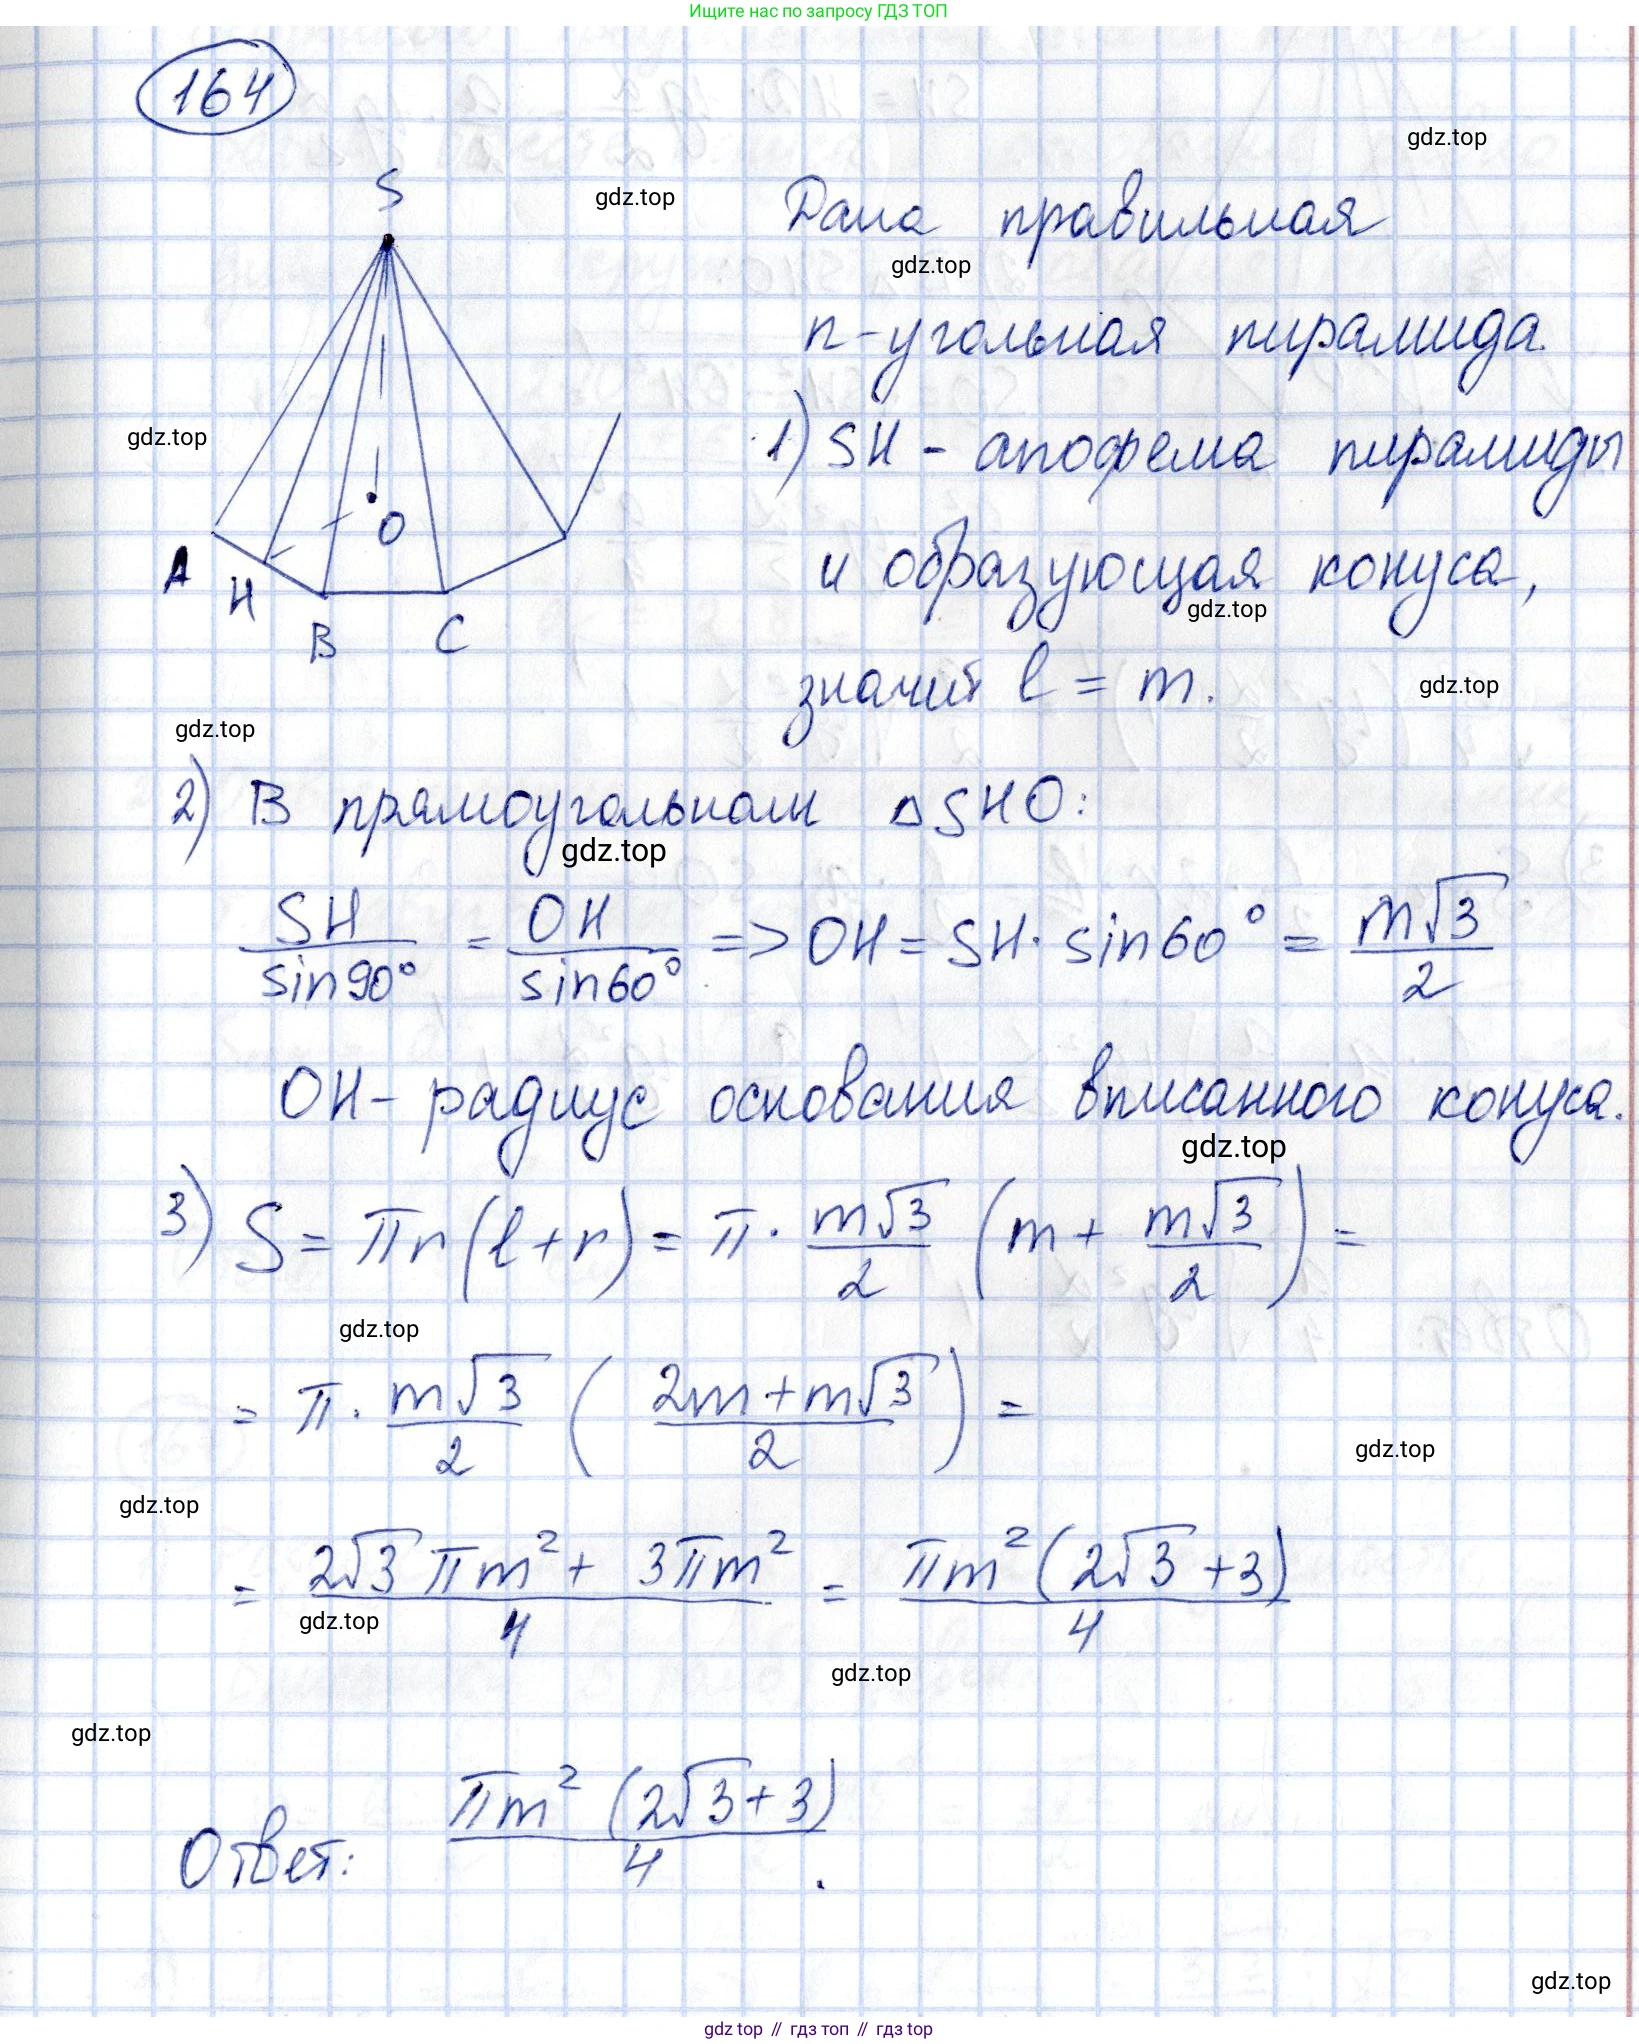 Ищите нас по запросу ГДЗ ТОП
164
gdz.top
S
gdz.top
Дана правильная
gdz.top
n-угольная пирамида.
gdz.top
1) SH - апофема пирамиды
O
A
H
и образующая конуса,
gdz.top
B
C
значит l = m.
gdz.top
gdz.top
2) В прямоугольном △SHO:
gdz.top
SH/sin90° = OH/sin60° => OH = SH · sin60° = m√3/2
OH - радиус основания вписанного конуса.
gdz.top
3) S = πr(l+r) = π · m√3/2 (m + m√3/2) =
gdz.top
= π · m√3/2 ( (2m+m√3)/2 ) =
gdz.top
gdz.top
= (2√3πm² + 3πm²)/4 = πm²(2√3+3)/4
gdz.top
gdz.top
gdz.top
Ответ: πm²(2√3+3)/4.
gdz.top
gdz top // гдз топ // gdz top